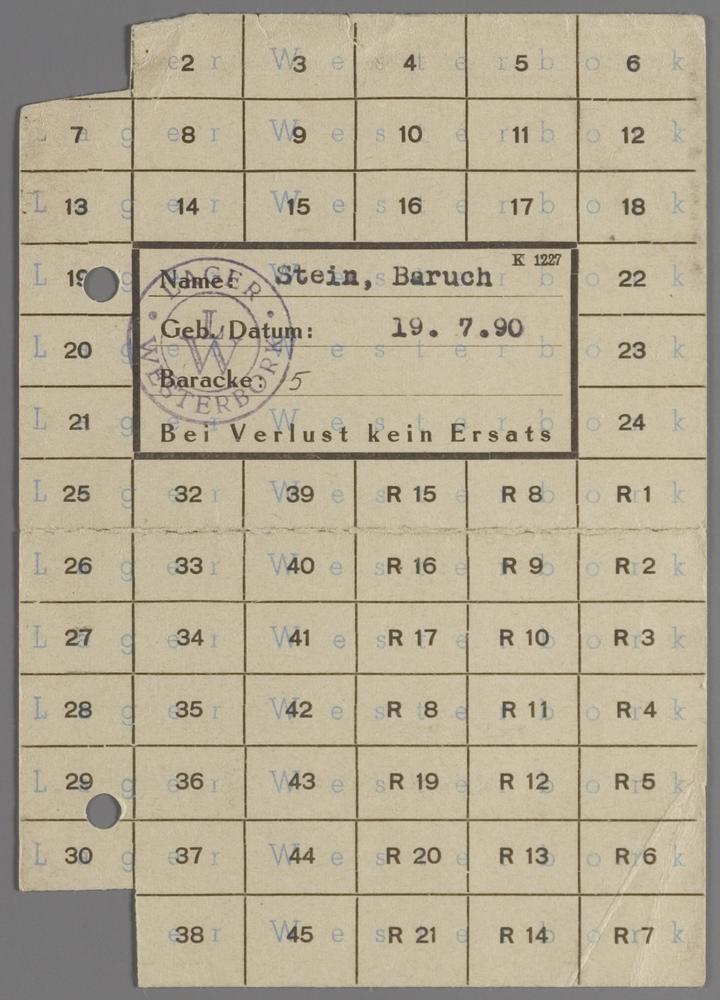 2 3 4 5 6
7 8 9 10 11 12
13 14 15 16 17 18
19 Name: Stein, Baruch K 1227 22
20 Geb. Datum: 19. 7.90 23
Baracke: 5
21 Bei Verlust kein Ersats 24
LAGER WESTERBORK
LW
25 32 39 R 15 R 8 R 1
26 33 40 R 16 R 9 R 2
27 34 41 R 17 R 10 R 3
28 35 42 R 8 R 11 R 4
29 36 43 R 19 R 12 R 5
30 37 44 R 20 R 13 R 6
38 45 R 21 R 14 R 7
Lager Westerbork